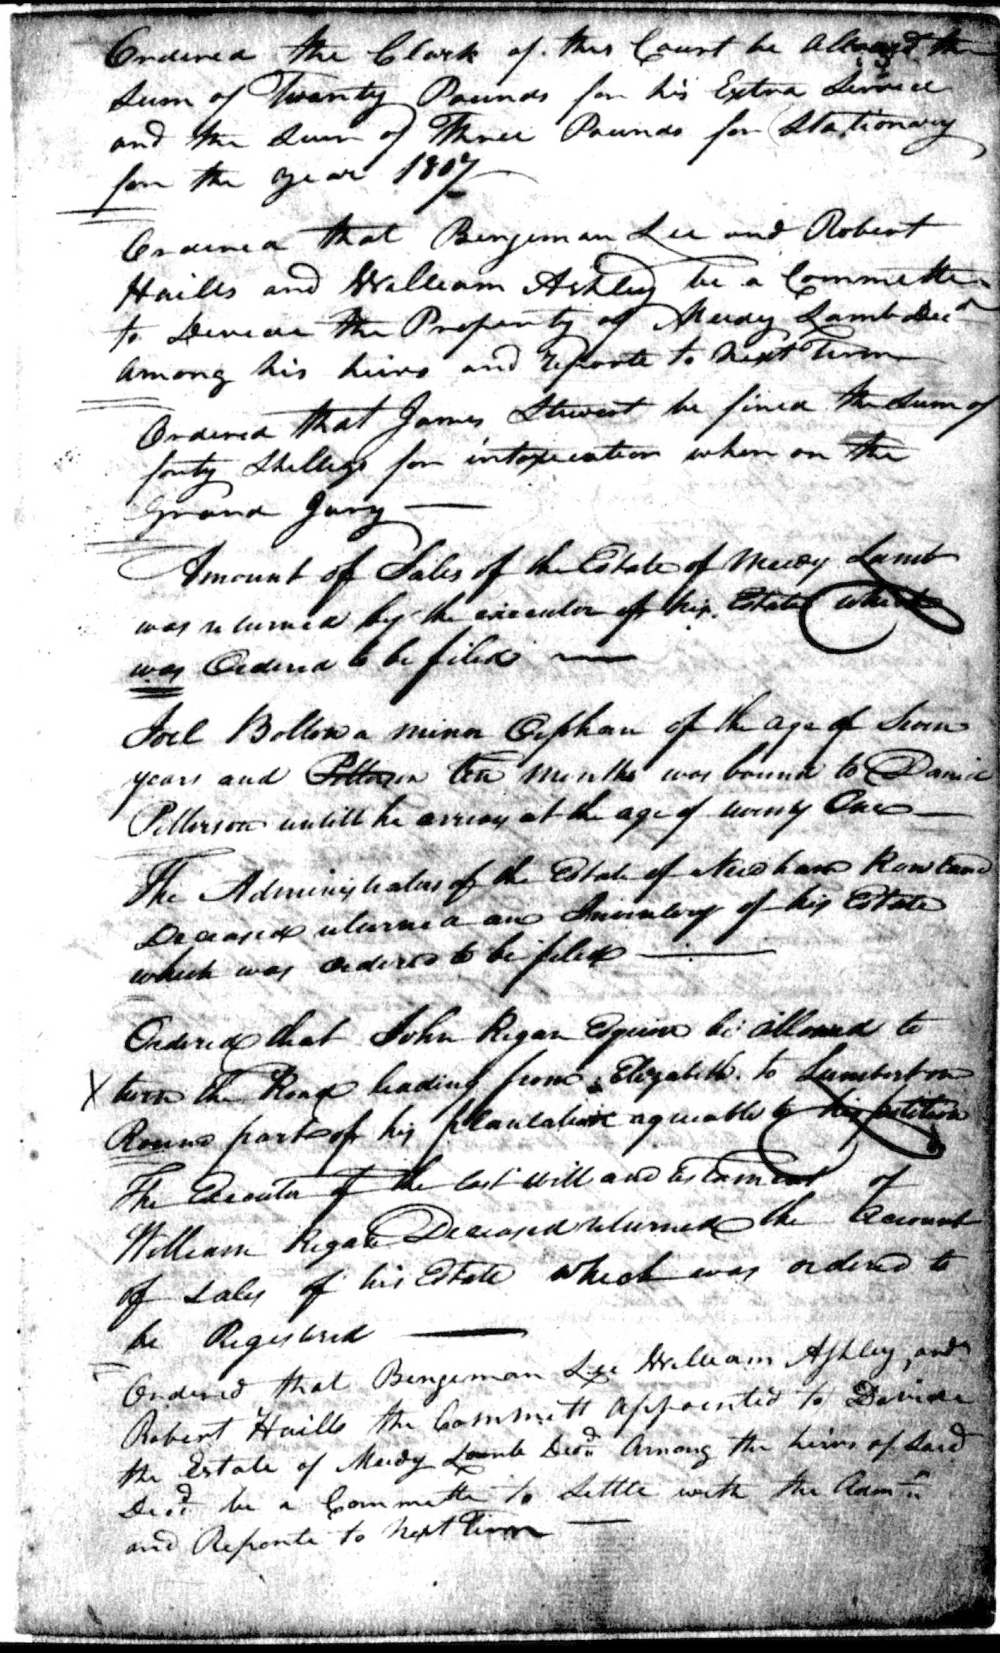 Ordered the Clark of this Court be allowed the
Sum of Twenty Pounds for his Extra Service
and the Sum of Three Pounds for Stationary
for the year 1807
Ordered that Bengeman Lee and Robert
Haills and William Ashley be a Committe
to Devide the Property of Meedy Lamb Decd
among his heirs and Reporte to Next Term
Ordered that James Stewart be fined the Sum of
forty Shilligs for intoxication when on the
Grand Jury
Amount of Sales of the Estate of Meedy Lamb
was returned by the executor of his Estate which
was Ordered to be filed
Joel Bolton a minor Orphan of the age of Seven
years and ten months was bound to Daniel
Pitterson untill he arrives at the age of twenty One
The Administrators of the Estate of Needham Rowland
Deceased returned an Inventory of his Estate
which was ordered to be filed
Ordered that John Regan Esquire be allowed to
X turn the Road leading from Elizabeth to Lumberton
Round part of his plantation agreeable to his petition
The Executor of the last will and testament of
William Regan Deceased returned the Account
of Sales of his Estate which was ordered to
be Registered
Ordered that Bengeman Lee William Ashley, and
Robert Haills the Committ appointed to Devide
the Estate of Meedy Lamb Decd among the heirs of Said
Decd be a Committe to Settle with the Admn
and Reporte to Next Term